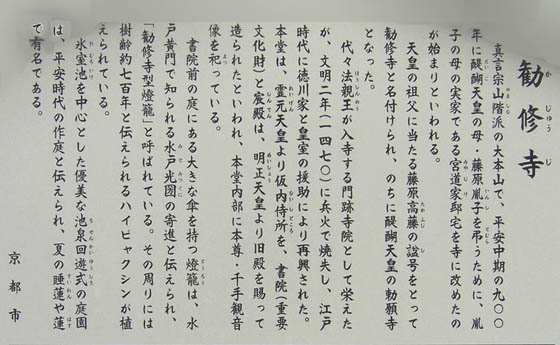 勧修寺
真言宗山階派の大本山で、平安中期の九〇〇
年に醍醐天皇の母・藤原胤子を弔うために、胤
子の母の実家である宮道家邸宅を寺に改めたの
が始まりといわれる。
天皇の祖父に当たる藤原高藤の諡号をとって
勧修寺と名付けられ、のちに醍醐天皇の勅願寺
となった。
代々法親王が入寺する門跡寺院として栄えた
が、文明二年（一四七〇）に兵火で焼失し、江戸
時代に徳川家と皇室の援助により再興された。
本堂は、霊元天皇より仮内侍所を、書院（重要
文化財）と宸殿は、明正天皇より旧殿を賜って
造られたといわれ、本堂内部に本尊・千手観音
像を祀っている。
書院前の庭にある大きな傘を持つ燈籠は、水
戸黄門で知られる水戸光圀の寄進と伝えられ、
「勧修寺型燈籠」と呼ばれている。その周りには
樹齢約七百年と伝えられるハイビャクシンが植
えられている。
氷室池を中心とした優美な池泉回遊式の庭園
は、平安時代の作庭と伝えられ、夏の睡蓮や蓮
で有名である。
京都市